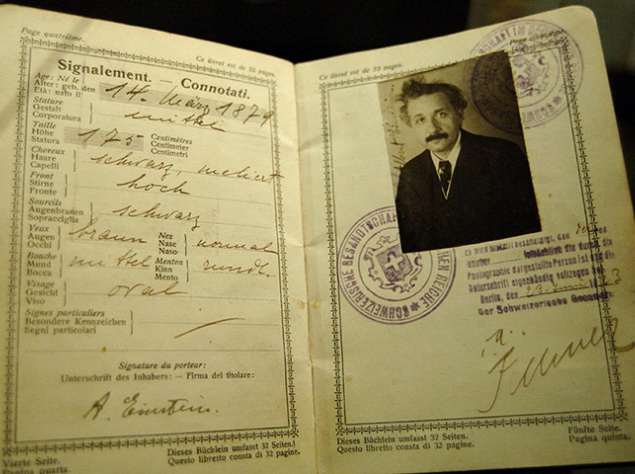 Page quatrième. Ce livret est de 32 pages.
Signalement. — Connotati.
Age: Né le
Alter: geb. den 14. März 1879
Età: nato il
Stature
Gestalt mittel
Corporatura
Taille
Höhe 175 Centimètres
Statura Centimeter
Centimetri
Cheveux
Haare schwarz, meliert
Capelli
Front
Stirne hoch
Fronte
Sourcils
Augenbrauen schwarz
Sopracciglia
Yeux Nez
Augen braun Nase normal
Occhi Naso
Bouche Menton
Mund mittel Kinn rundl.
Bocca Mento
Visage
Gesicht oval
Viso
Signes particuliers
Besondere Kennzeichen
Segni particolari
Signature du porteur:
Unterschrift des Inhabers: — Firma del titolare:
A. Einstein.
Vierte Seite. Dieses Büchlein umfasst 32 Seiten.
Pagina quarta. Questo libretto consta di 32 pagine.
Ce livret est de 32 pages. Page
SCHWEIZERISCHE GESANDTSCHAFT REICHE
durch die
Photographie dargestellte Person ist und die
Unterschrift eigenhändig vollzogen
Berlin, den 23
Der Schweizerische Gesandte
Dieses Büchlein umfasst 32 Seiten. Fünfte Seite.
Questo libretto consta di 32 pagine. Pagina quinta.